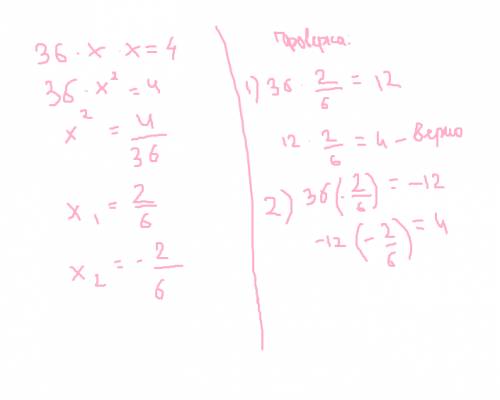 36 · x · x = 4
36 · x² = 4
x² = 4/36
x₁ = 2/6
x₂ = - 2/6
Проверка:
1) 36 · 2/6 = 12
12 · 2/6 = 4 - верно
2) 36(-2/6) = -12
-12(-2/6) = 4